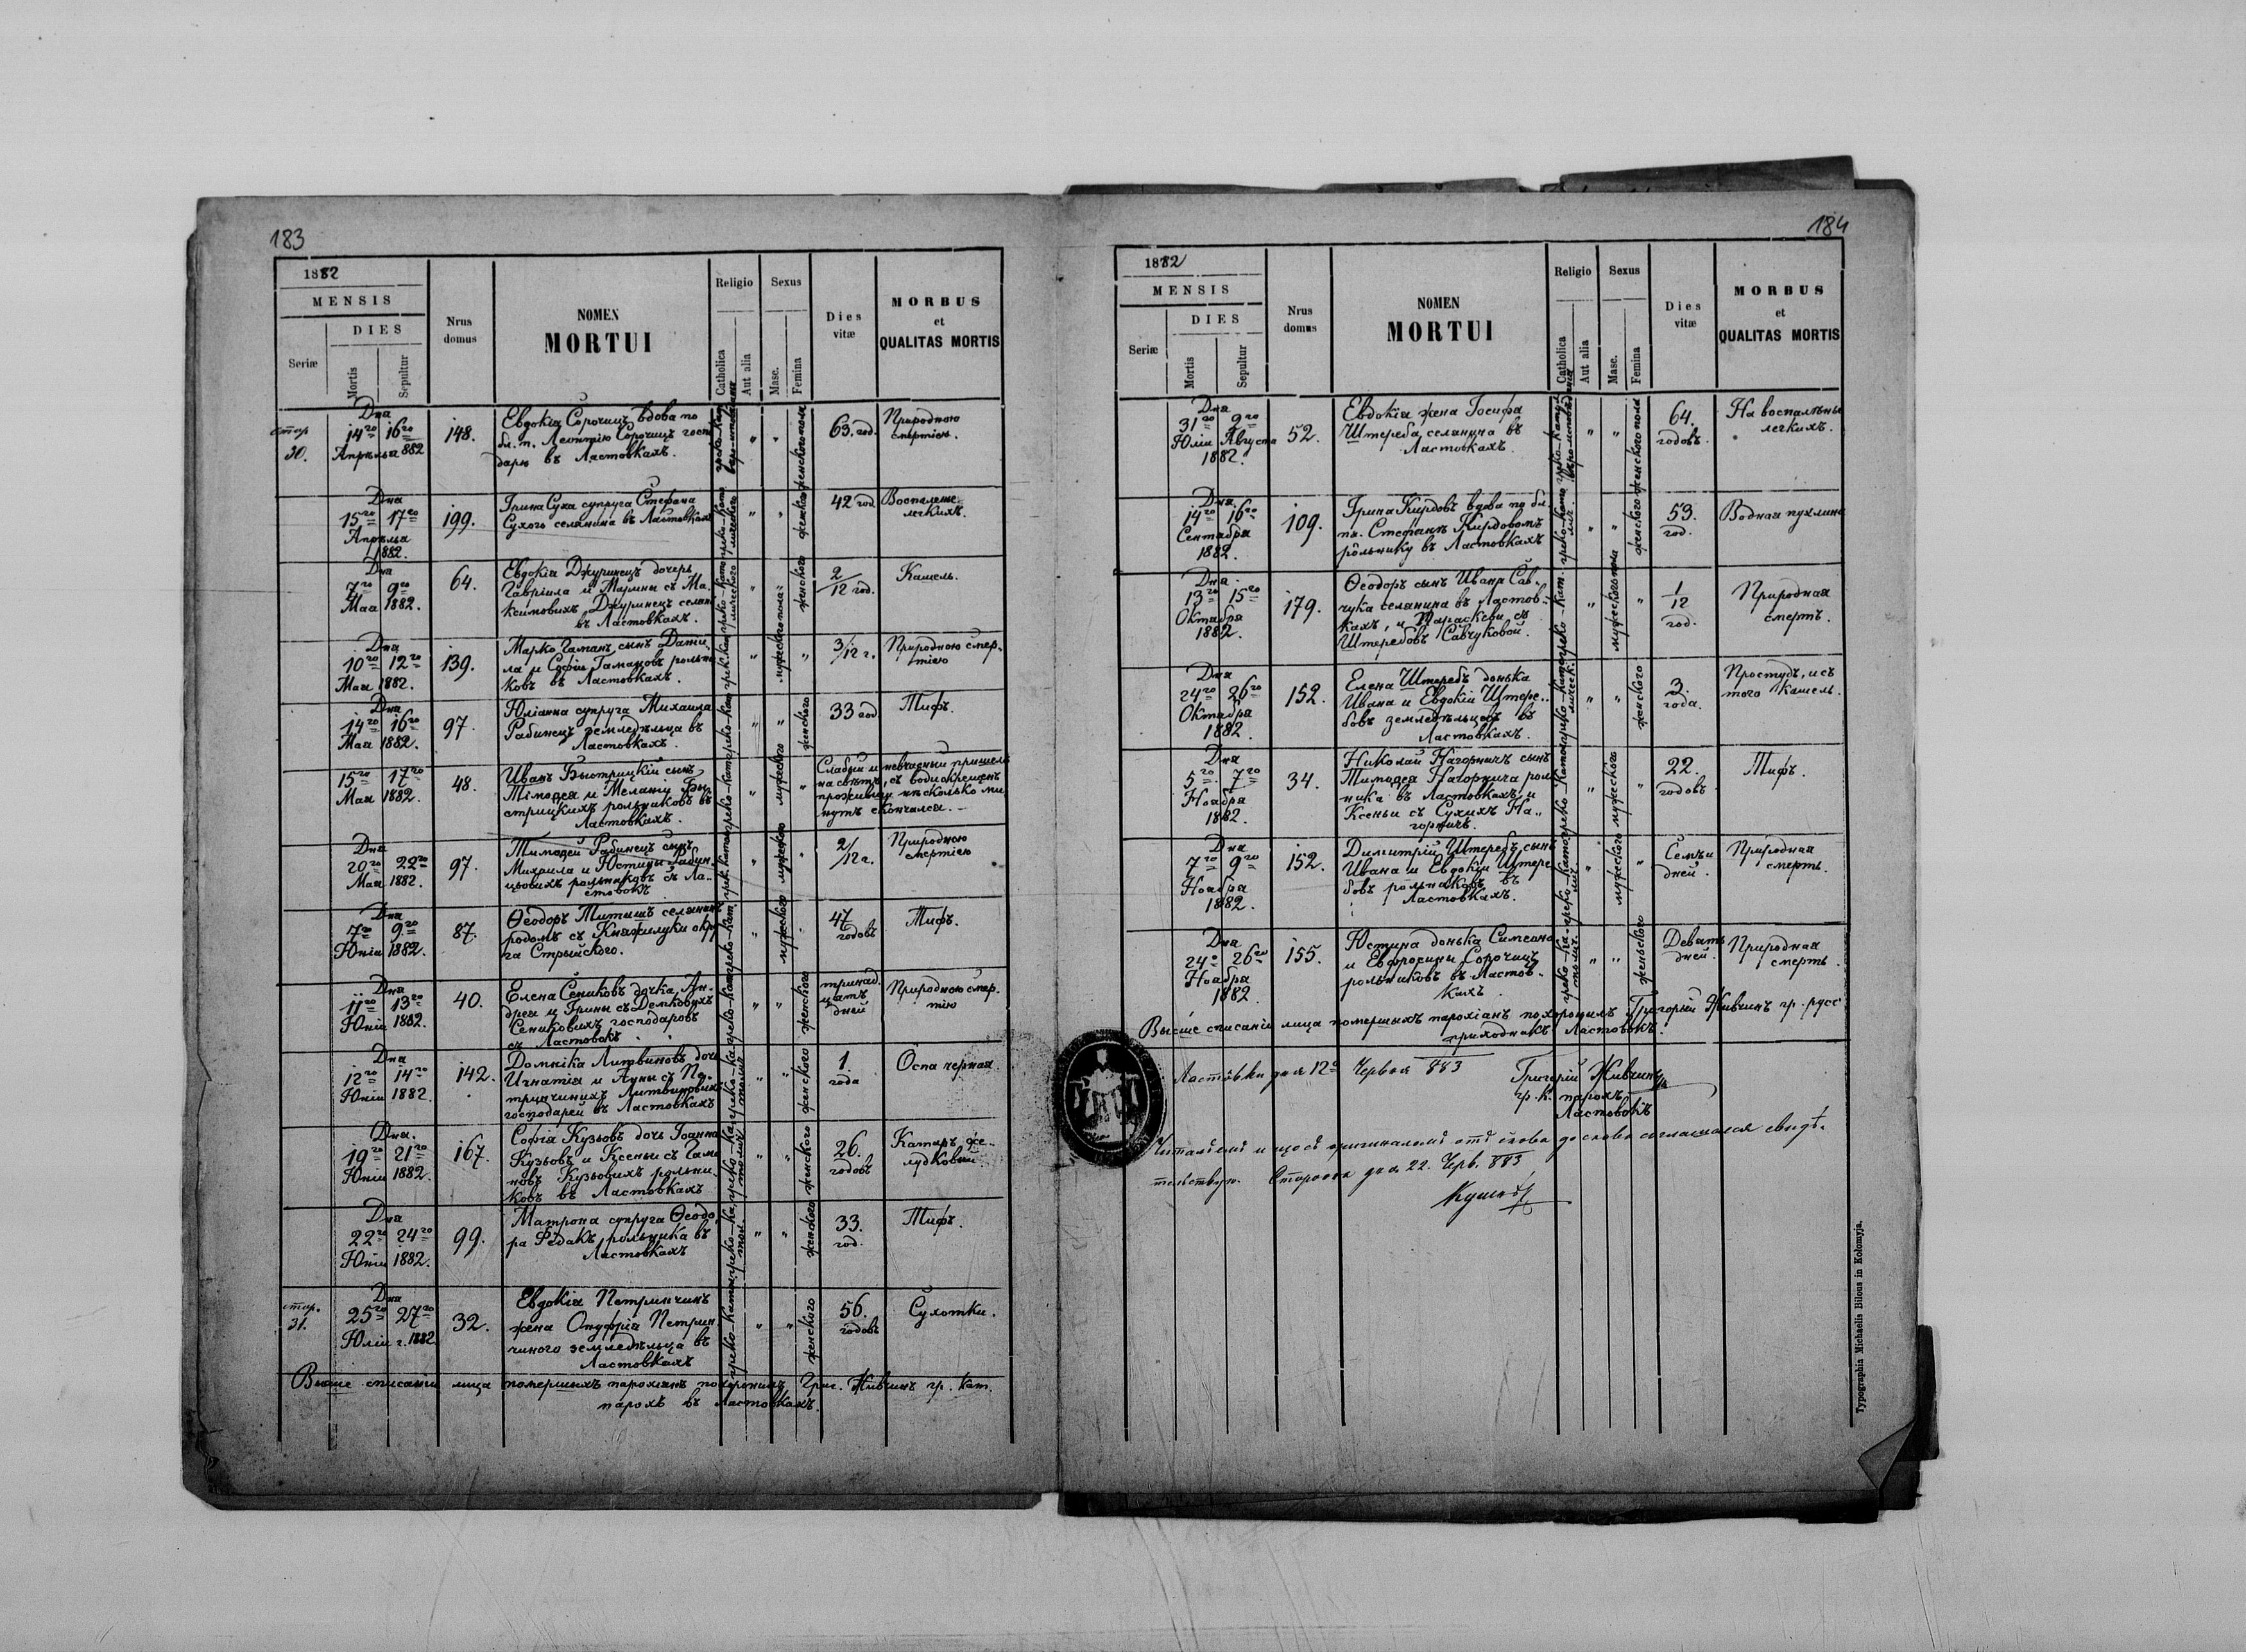 183
1882
MENSIS
DIES
Seriæ
Mortis
Sepultur
Nrus
domus
NOMEN
MORTUI
Religio
Catholica
Aut alia
Sexus
Masc.
Femina
Dies
vitæ
MORBUS
et
QUALITAS MORTIS
стор
30.
Дня
14го 16го
Апрѣля 882
148.
Евдокія Сорочицъ вдова по
бл. п. Леонтію Сорочицъ госпо
дарю въ Ластовкахъ.
женского пола
63. год.
Природною
смертію.
Дня
15го 17го
Апрѣля
1882.
199.
Ірина Суха супруга Стефана
Сухого селянина въ Ластовкахъ
женского
42 год
Воспаленіе
легкихъ.
Дня
7го 9го
Мая 1882.
64.
Евдокія Джуринецъ дочерь
Гавріила и Марины съ Ма-
ксимовихъ Джуринецъ селянъ
въ Ластовкахъ.
женского
2/12 год.
Кашель.
Дня
10го 12го
Мая 1882.
139.
Марко Гаманъ сынъ Дани-
ла и Софіи Гамановъ рольни
ковъ въ Ластовкахъ.
мужеского пола
3/12 г.
Природною смер-
тію
Дня
14го 16го
Мая 1882.
97
Юліанна супруга Михаила
Рабинецъ земледѣльца въ
Ластовкахъ.
женского
33 год
Тифъ.
15го 17го
Мая 1882.
48.
Иванъ Быстрицкій сынъ
Тімодея и Меланіи Бы-
стрицкихъ рольниковъ въ
Ластовкахъ.
мужеского
Слабый и невчасный пришелъ
на свѣтъ, съ води окрещенъ
проживши нѣсколько ми
нутъ скончался. —
Дня
20го 22го
Мая 1882.
97.
Тимодей Рабинецъ сынъ
Михаила и Юстины Рабин-
цьовихъ рольниковъ съ Ла-
стовокъ
мужеского
2/12 г.
Природною
смертію
Дня
7го 9го
Юнія 1882.
87.
Ѳеодоръ Титишъ селянинъ
родомъ съ Княжилуки окру
га Стрыйского.
мужеского
47
годовъ
Тифъ.
Дня
11го 13го
Юнія 1882.
40.
Елена Сениковъ дочка, Ан-
дрея и Ірины съ Демковихъ
Сениковихъ господаровъ
съ Ластовокъ
женского
тринад
цать
дней
Природною смер-
тію
Дня
12го 14го
Юнія 1882.
142.
Домніка Литвиновъ дочь
Игнатія и Анны съ Пе-
тринчинихъ Литвиновихъ
господарей въ Ластовкахъ
женского
1.
года
Оспа черная.
Дня.
19го 21го
Юнія 1882.
167.
Софія Кузьовъ дочь Іоанна
Кузьовъ и Ксеньи съ Гама
новъ Кузьовихъ рольни-
ковъ въ Ластовкахъ
женского
26.
годовъ
Катаръ же-
лудковый.
Дня
22го 24го
Юнія 1882.
99.
Матрона супруга Ѳеодо-
ра Федакъ рольника въ
Ластовкахъ
женского
33.
год.
Тифъ.
стор.
31.
Дня
25го 27го
Юлія г. 1882
32.
Евдокія Петринчинъ
жена Онуфрія Петрин
чиного земледѣльца въ
Ластовкахъ
женского
56.
годовъ
Сухотки.
Высше списаніи лица помершихъ парохіанъ похоронилъ Григ. Живчинъ гр. кат.
парохъ въ Ластовкахъ.
184
1882
MENSIS
DIES
Seriæ
Mortis
Sepultur
Nrus
domus
NOMEN
MORTUI
Religio
Catholica
Aut alia
Sexus
Masc.
Femina
Dies
vitæ
MORBUS
et
QUALITAS MORTIS
Дня
31го 2го
Юлія Августа
1882.
52.
Евдокія жена Іосифа
Штереба, селянина въ
Ластовкахъ.
женского пола
64.
годовъ.
На воспалѣнье
легкихъ.
Дня
14го 16го
Сентабра
1882.
109.
Ірина Кирдовъ вдова по бл.
п. Стефанѣ Кирдовомъ
рôльнику въ Ластовкахъ
женского
53.
год.
Водная пухлина
Дня
13го 15го
Октабра
1882.
179.
Ѳеодоръ сынъ Ивана Сав-
чука селянина въ Ластов-
кахъ, и Параскевы съ
Штеребовъ Савчуковой.
мужеского пола
1/12
год.
Природная
смерть.
Дня
24го 26го
Октабра
1882
152.
Елена Штеребъ донька
Ивана и Евдокіи Штере-
бовъ земледѣльцевъ въ
Ластовкахъ.
женского
3.
года.
Простудъ, и съ
того кашель.
Дня
5го 7го
Ноабра
1882.
34.
Николай Нагорничъ сынъ
Тимодея Нагорнича роль
ника въ Ластовкахъ и
Ксеньи съ Сухихъ На-
горничъ.
мужеского
22.
годовъ
Тифъ.
Дня
7го 9го
Ноабра
1882.
152.
Димитрій Штеребъ сынъ
Ивана и Евдокіи Штере
бовъ рольниковъ въ
Ластовкахъ.
мужеского
Семъи
дней.
Природная
смерть.
Дня
24го 26го
Ноабра
1882
155.
Юстина донька Симеона
и Евфросины Сорочицъ
рольниковъ въ Ластов-
кахъ.
женьского
Девать
дней.
Природная
смерть.
Высше списаніи лица помершихъ парохіанъ похоронилъ Григорый Живчинъ гр. русс
приходникъ Ластовокъ.
Ластôвки дня 12го Червця 883
Григорій Живчинъ
гр. к. парохъ
Ластовокъ
оригиналомъ отъ слова до слова согласнался свидѣ-
тельствую. дня 22. Черв. 883
Typographia Michaelis Bilous in Kolomyja.